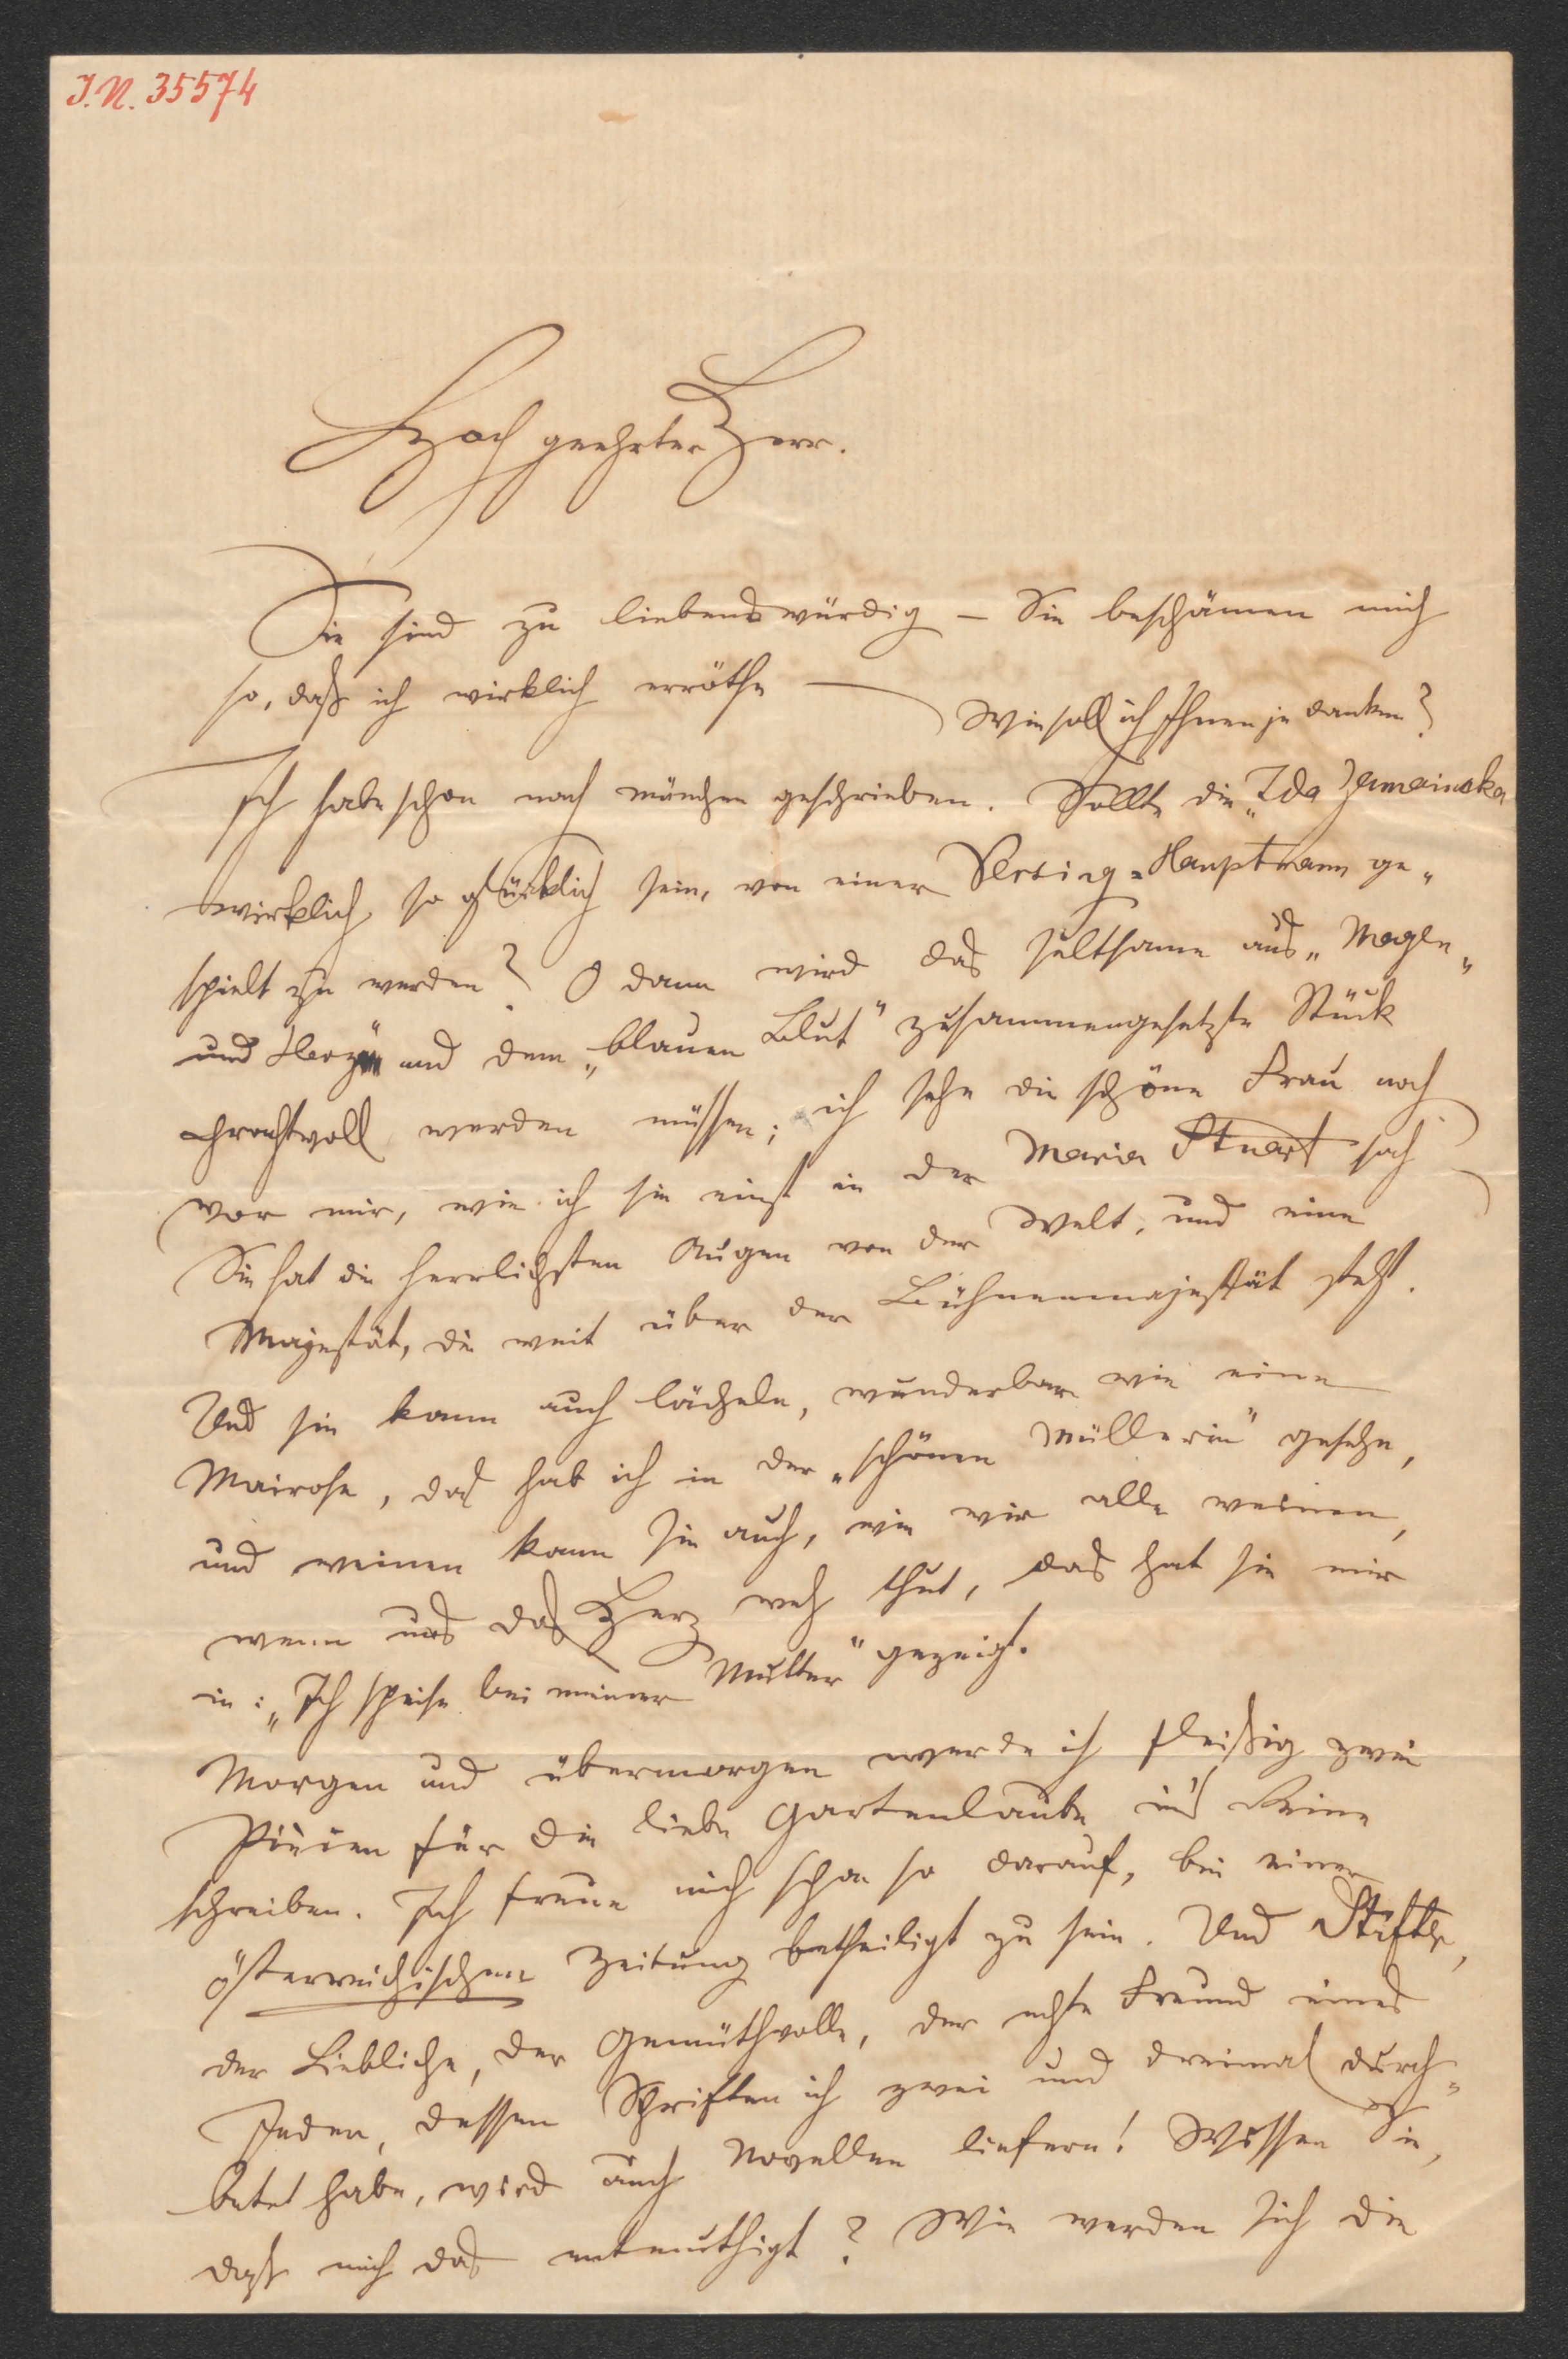 I.N. 35574
Hoch geehrter Herr.
Sie sind zu liebenswürdig – Sie beschämen mich
so, daß ich wirklich erröthe —
Wie soll ich Ihnen je danken?
Ich habe schon nach München geschrieben. Sollte die „Ida
wirklich so glücklich sein, von einer Versing=Hauptmann ge„
spielt zu werden? O dann wird das seltsame aus „Maske„
und Herz" und dem „blauen Blut" zusammengesetzte Stück
prachtvoll werden müssen; ich sehe die schöne Frau noch
vor mir, wie ich sie einst in der Maria Stuart sah
Sie hat die herrlichsten Augen von der Welt, und eine
Majestät, die weit über der Bühnenmajestät steht.
Und sie kann auch lächeln, wunderbar wie eine
Mairose, das hab ich in der „schönen Müllerin" gesehn,
und weinen kann sie auch, wie wir alle weinen,
wenn uns das Herz weh thut, das hat sie mir
in: „Ich speise bei meiner Mutter" gezeigt.
Morgen und übermorgen werde ich fleißig zwei
Piècen für die liebe Gartenlaube ins Reine
schreiben. Ich freue mich schon so darauf, bei einer
österreichischen Zeitung betheiligt zu sein. Und Stifter,
der Liebliche, der Gemüthvolle, der echte Freund eines
Jeden, dessen Schriften ich zwei und dreimal durch„
betet habe, wird auch Novellen liefern! Wissen Sie,
daß mich das entmuthigt? Wie werden sich die